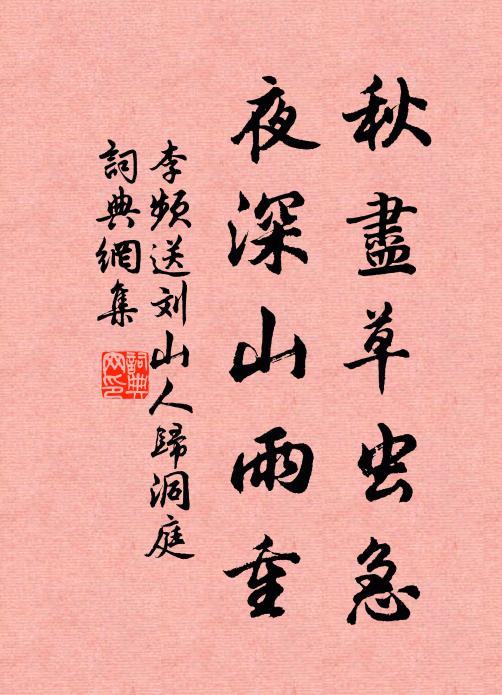 秋盡草虫急
夜深山雨重
李频送刘山人歸洞庭
詞典網集
詞典網印